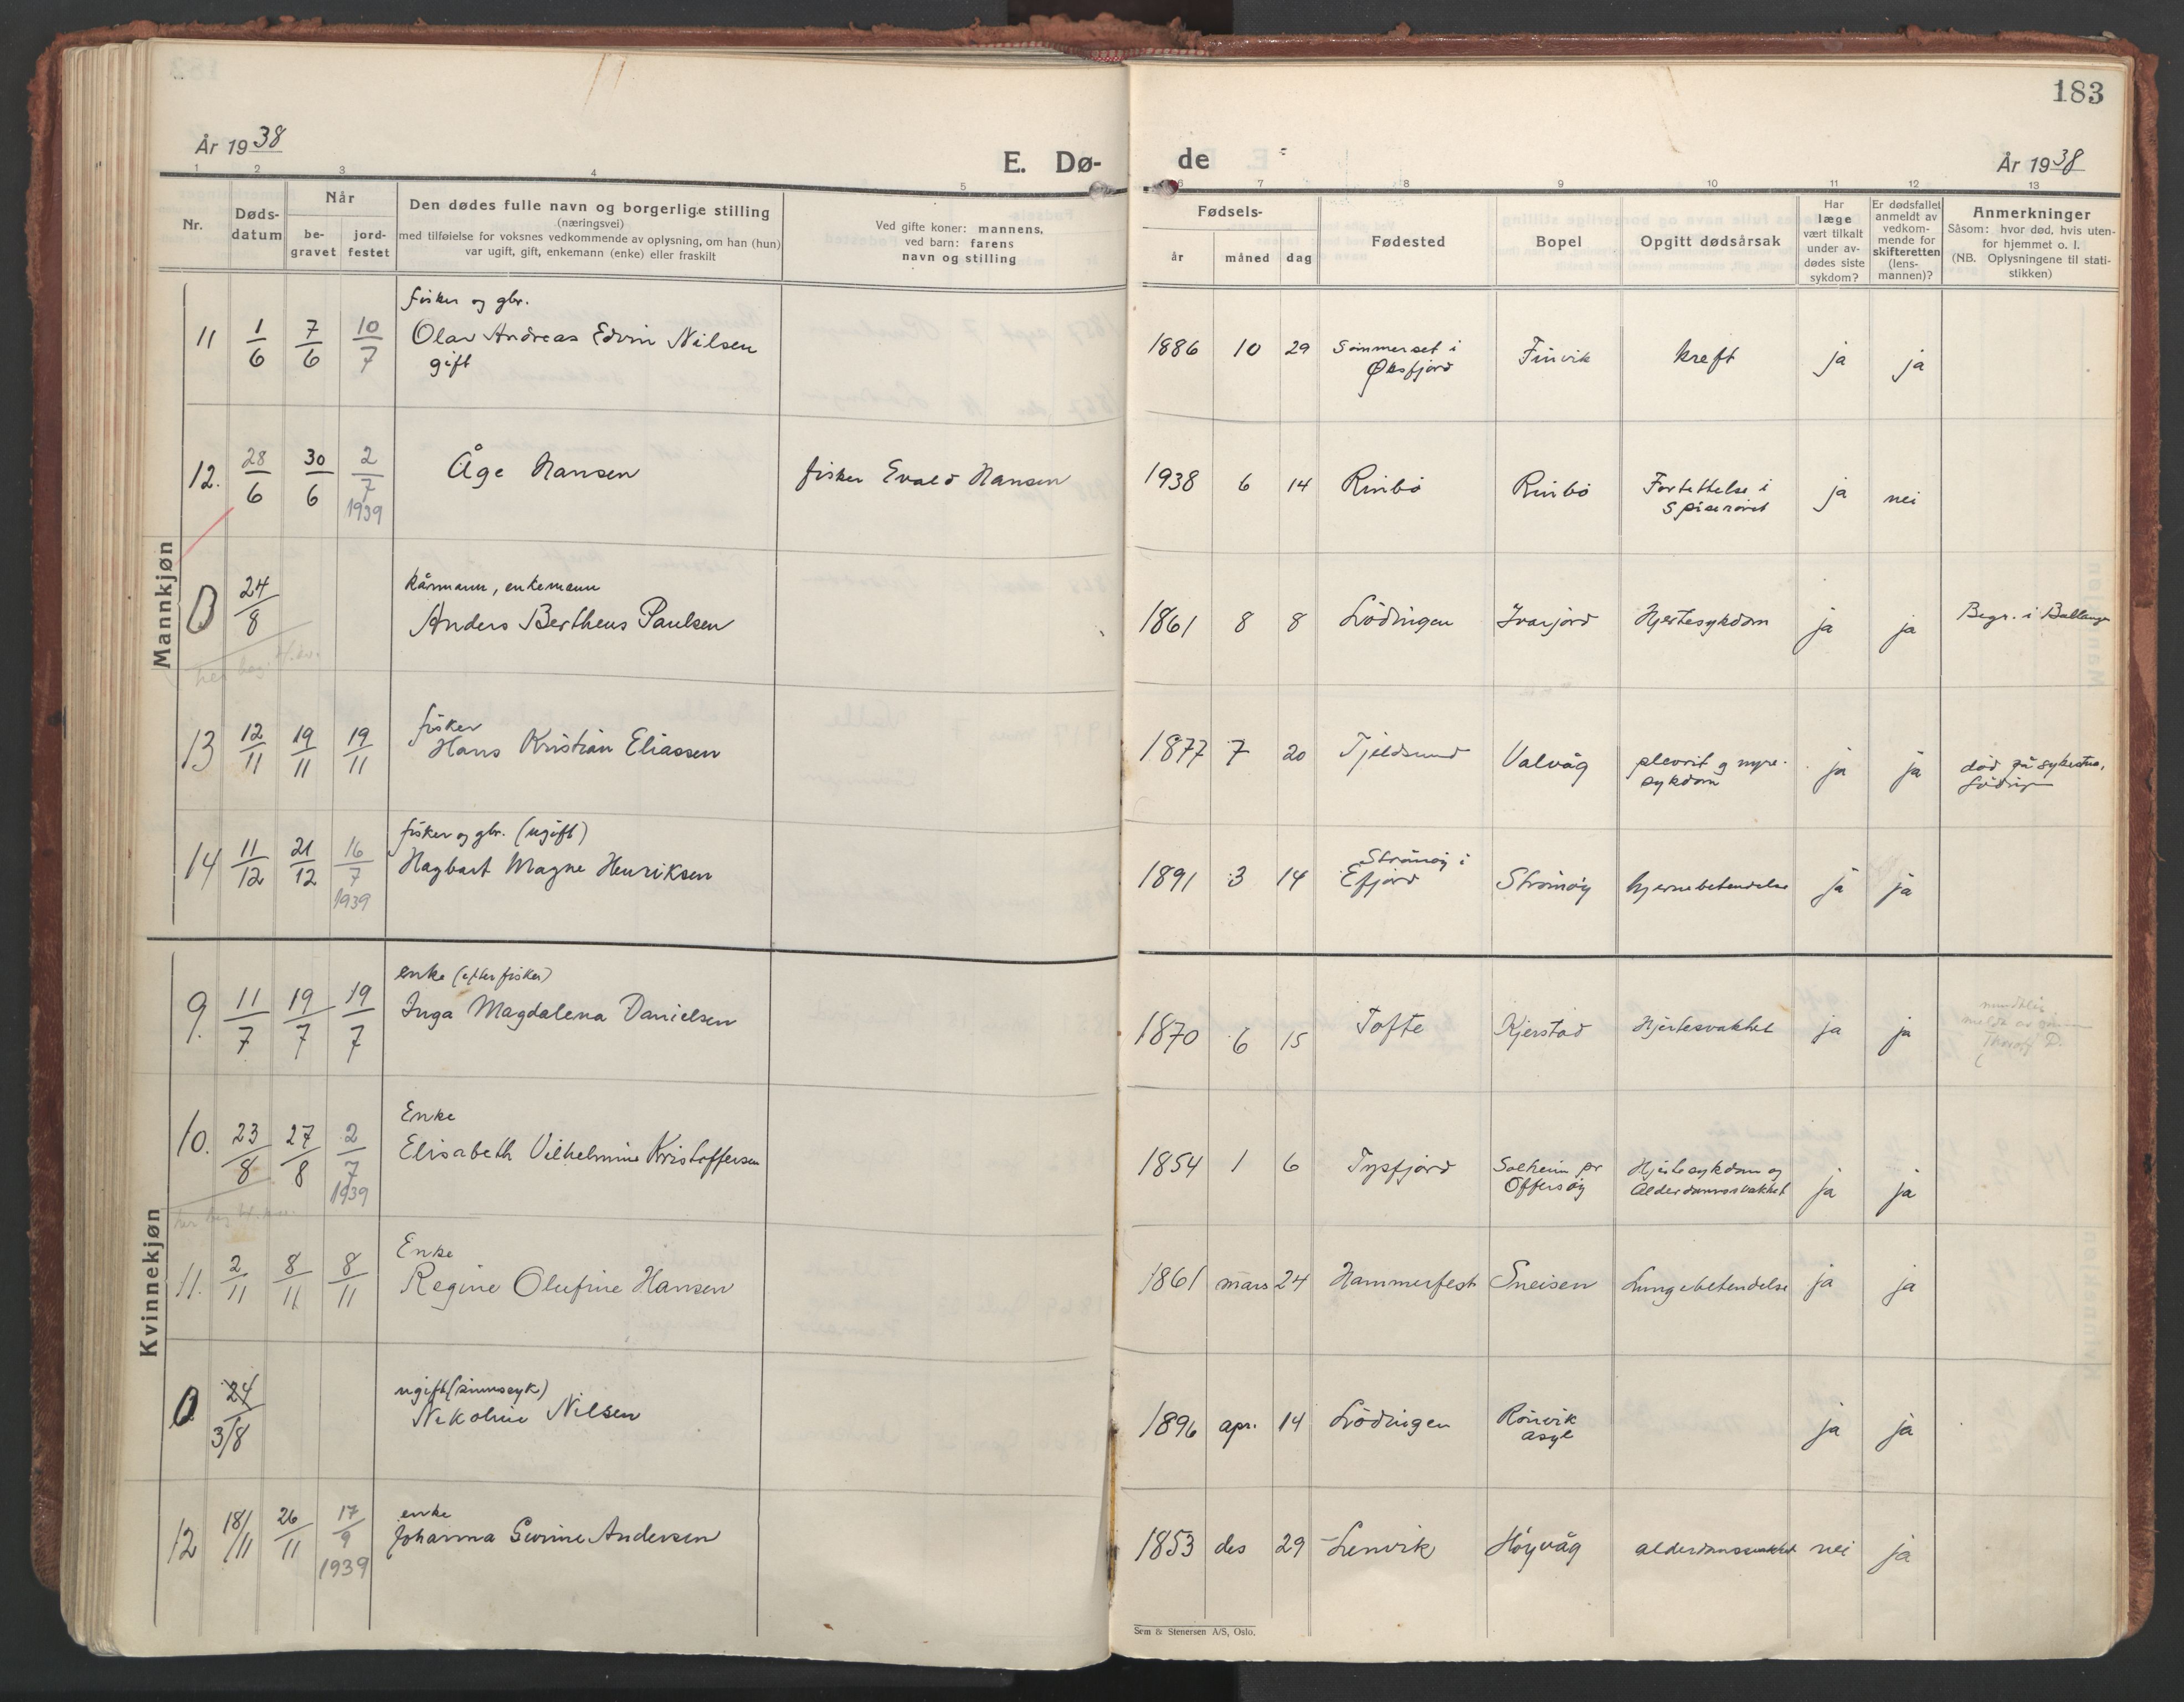 183
År 1938
E. Dø-
de
År 1938
1 2 3 4 5 6 7 8 9 10 11 12 13
Nr.
Døds-
datum
Når
be-
gravet
jord-
festet
Den dødes fulle navn og borgerlige stilling
(næringsvei)
med tilføielse for voksnes vedkommende av oplysning, om han (hun)
var ugift, gift, enkemann (enke) eller fraskilt
Ved gifte koner: mannens,
ved barn: farens
navn og stilling
Fødsels-
år måned dag
Fødested
Bopel
Opgitt dødsårsak
Har
læge
vært tilkalt
under av-
dødes siste
sykdom?
Er dødsfallet
anmeldt av
vedkom-
mende for
skifteretten
(lens-
mannen)?
Anmerkninger
Såsom: hvor død, hvis uten-
for hjemmet o. l.
(NB. Oplysningene til stati-
stikken)
Mannkjøn
fisker og gbr.
11 1/6 7/6 10/7 Olav Andreas Edvin Nilsen 1886 10 29 Sommerset i Finvik kreft ja ja
gift Øksfjord
12. 28/6 30/6 2/7 Åge Hansen fisker Evald Hansen 1938 6 14 Rinbø Rinbø Fortettelse i ja nei
1939 Spiserøret
kårmann, enkemann
0 24/8 Anders Bertheus Paulsen 1861 8 8 Lødingen Ivarjord Hjertesykdom ja ja Begr. i Ballangen
fisker
13 12/11 19/11 19/11 Hans Kristian Eliassen 1877 7 20 Tjeldsund Valvåg plevrit og nyre- ja ja død på sykestua,
sykdom Lødingen
fisker og gbr. (ugift) Strømøy i
14 11/12 21/12 16/7 Hagbart Magne Henriksen 1891 3 14 Efjord Strømøy hjernebetendelse ja ja
1939
Kvinnekjøn
enke (efter fisker)
9. 11/7 19/7 19/7 Inga Magdalena Danielsen 1870 6 15 Tofte Kjerstad Hjertesvakhet ja ja
Enke
10. 23/8 27/8 2/7 Elisabeth Vilhelmine Kristoffersen 1854 1 6 Tysfjord Solheim pr Hjertesykdom og ja ja
1939 Offersøy Alderdomssvakhet
Enke
11. 2/11 8/11 8/11 Regine Olufine Hansen 1861 mars 24 Hammerfest Sneisen Lungebetendelse ja ja
ugift (sinnssyk)
0 24 3/8 Nikoline Nilsen 1896 apr. 14 Lødingen Rønvik ja ja
asyl
enke
12 18/11 26/11 17/9 Johanna Gurine Andersen 1853 des 29 Lenvik Høyvåg alderdomssvakhet nei ja
1939
Sem & Stenersen A/S, Oslo.